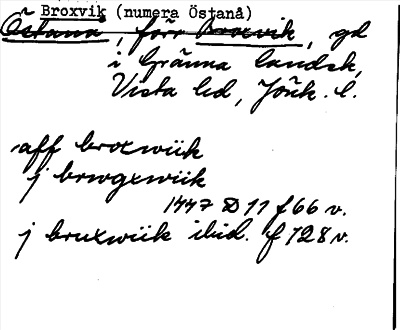 Broxvik (numera Östanå)
Östanå, förr Broxvik, gd
i Gränna landsk,
Vista hd, Jönk. l.
aff broxwiik
j brwgxwiik
1447 D 11 f 66 v.
j bruxwiik ibid. f 128 v.